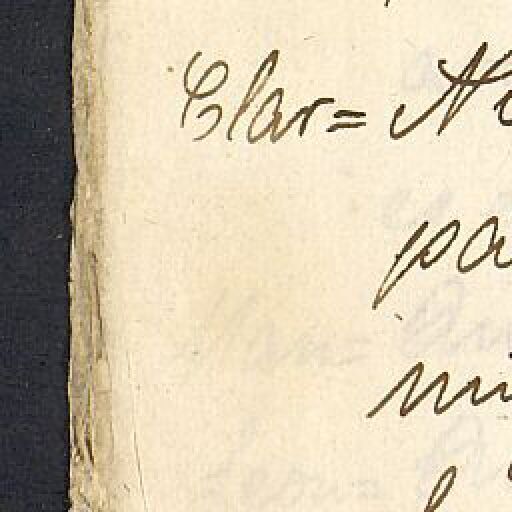 Clar= N
pa
mi